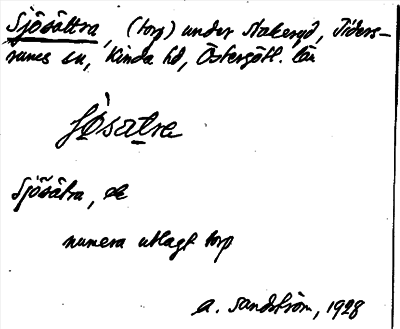 Sjösättra, (torp) under Stakeryd, Tiders-
rums sn, Kinda hd, Östergötl. län
Sjösätra, de
numera utlagt torp
A. Sandström, 1928